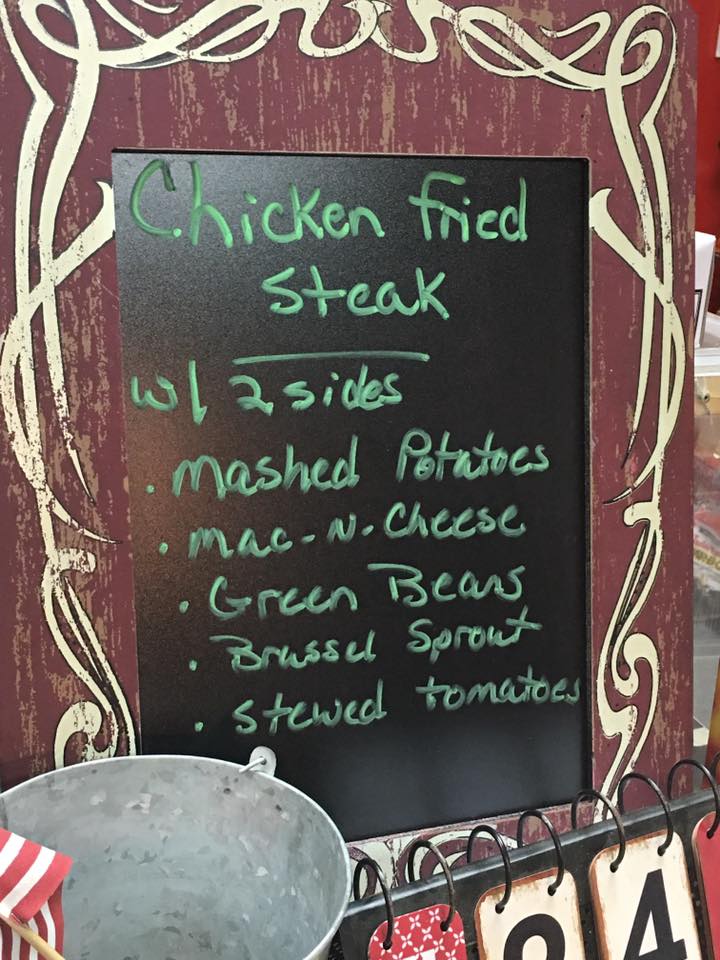 Chicken fried
steak
w/ 2 sides
. mashed Potatoes
. mac-N-Cheese
. Green Beans
. Brussel Sprout
. stewed tomatoes
4